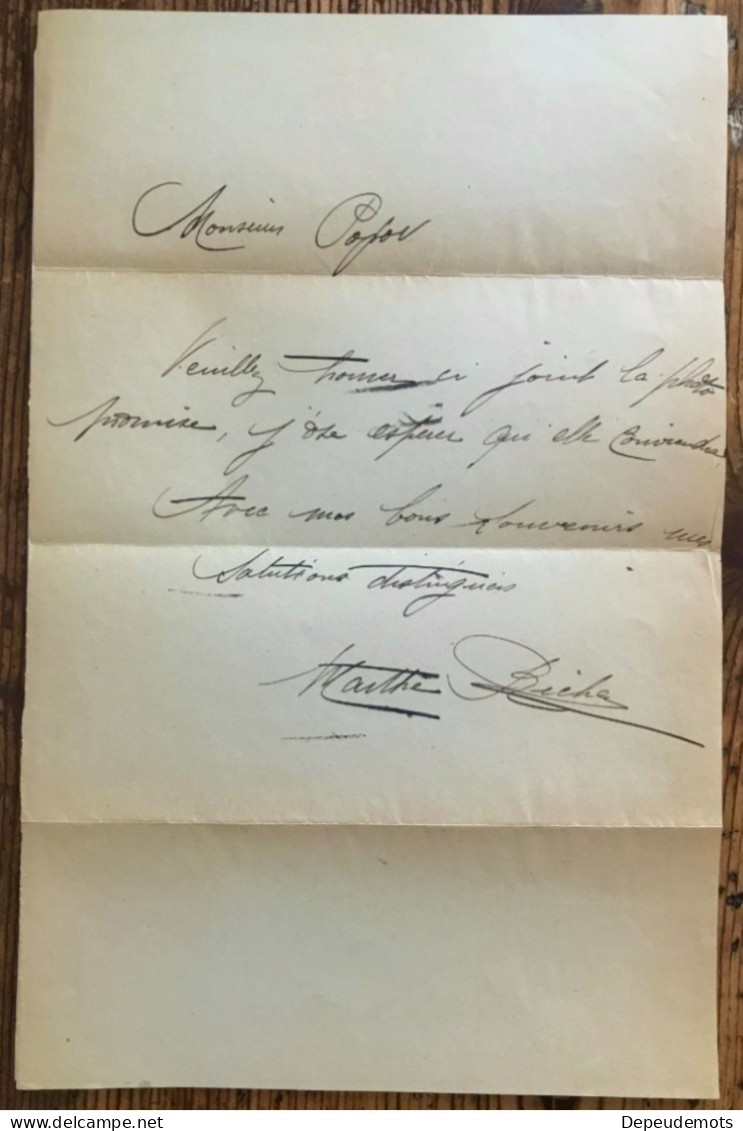 Monsieur Popov
Veuillez trouver ci joint la photo
promise, j'ose espérer qu'elle conviendra
Avec mes bons souvenirs mes
salutions distinguées
Marthe Richer
Delcampe.net
Depeudemots